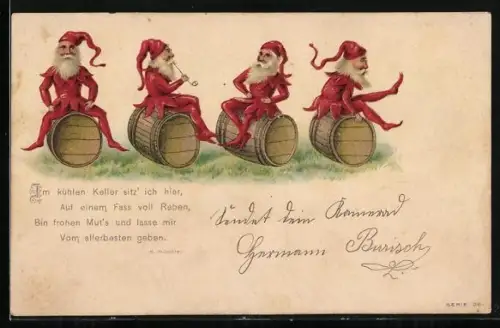 Im kühlen Keller sitz' ich hier,
Auf einem Fass voll Reben,
Bin frohen Mut's und lasse mir
Vom allerbesten geben.
Sendet dein Kamerad
Hermann Burisch
SERIE